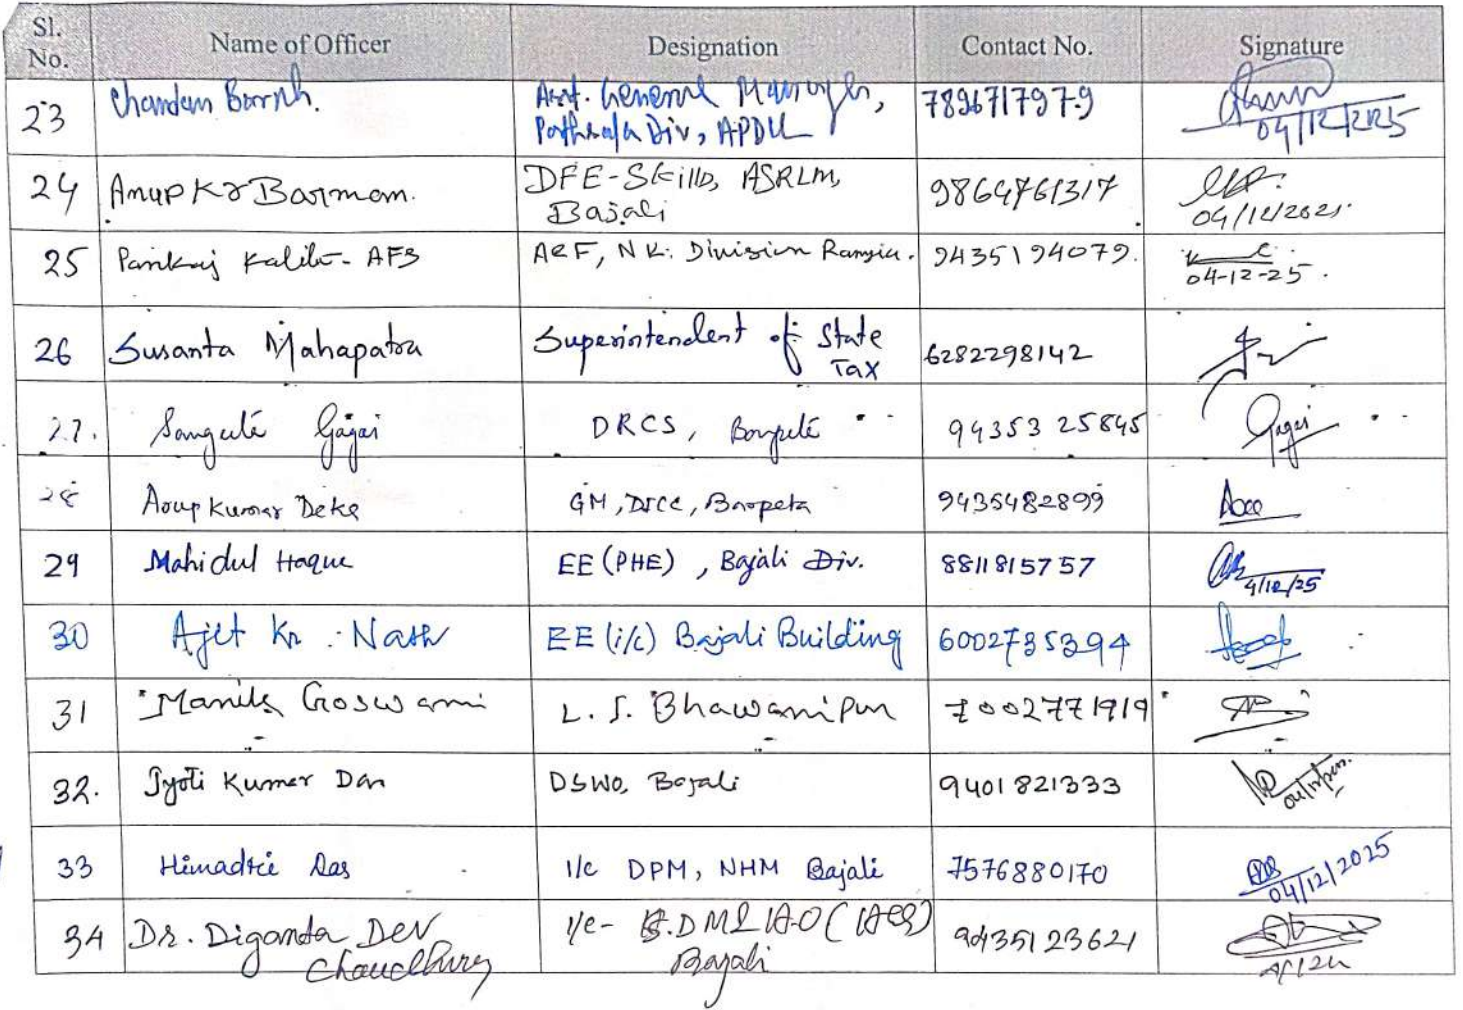 Sl. No. Name of Officer Designation Contact No. Signature
23 Chandan Borah. Asst. General Manager, Pathsala Div, APDCL 7896717979 04/12/2025
24 Anup Kr Barman. DFE-Skills, ASRLM, Bajali 9864761317 04/12/2025
25 Pankaj Kalita- AFS ACF, N.K. Division Rangia. 9435194079. 04-12-25.
26 Susanta Mahapatra Superintendent of State Tax 6282298142
27. Gagai DRCS, 94353 25845 Gagai
28 Arup Kumar Deka GM, DICC, Barpeta 9435482899
29 Mahidul Haque EE (PHE), Bajali Div. 8811815757 4/12/25
30 Ajit Kr. Nath EE (i/c) Bajali Building 6002735394
31 Goswami Bhawanipur 7002771919
32. Jyoti Kumar Das DSWO, Bajali 9401821333
33 Himadri Das i/c DPM, NHM Bajali 7576880170 04/12/2025
34 Dr. Diganta Dev Chaudhury i/c- Bajali 9435123621